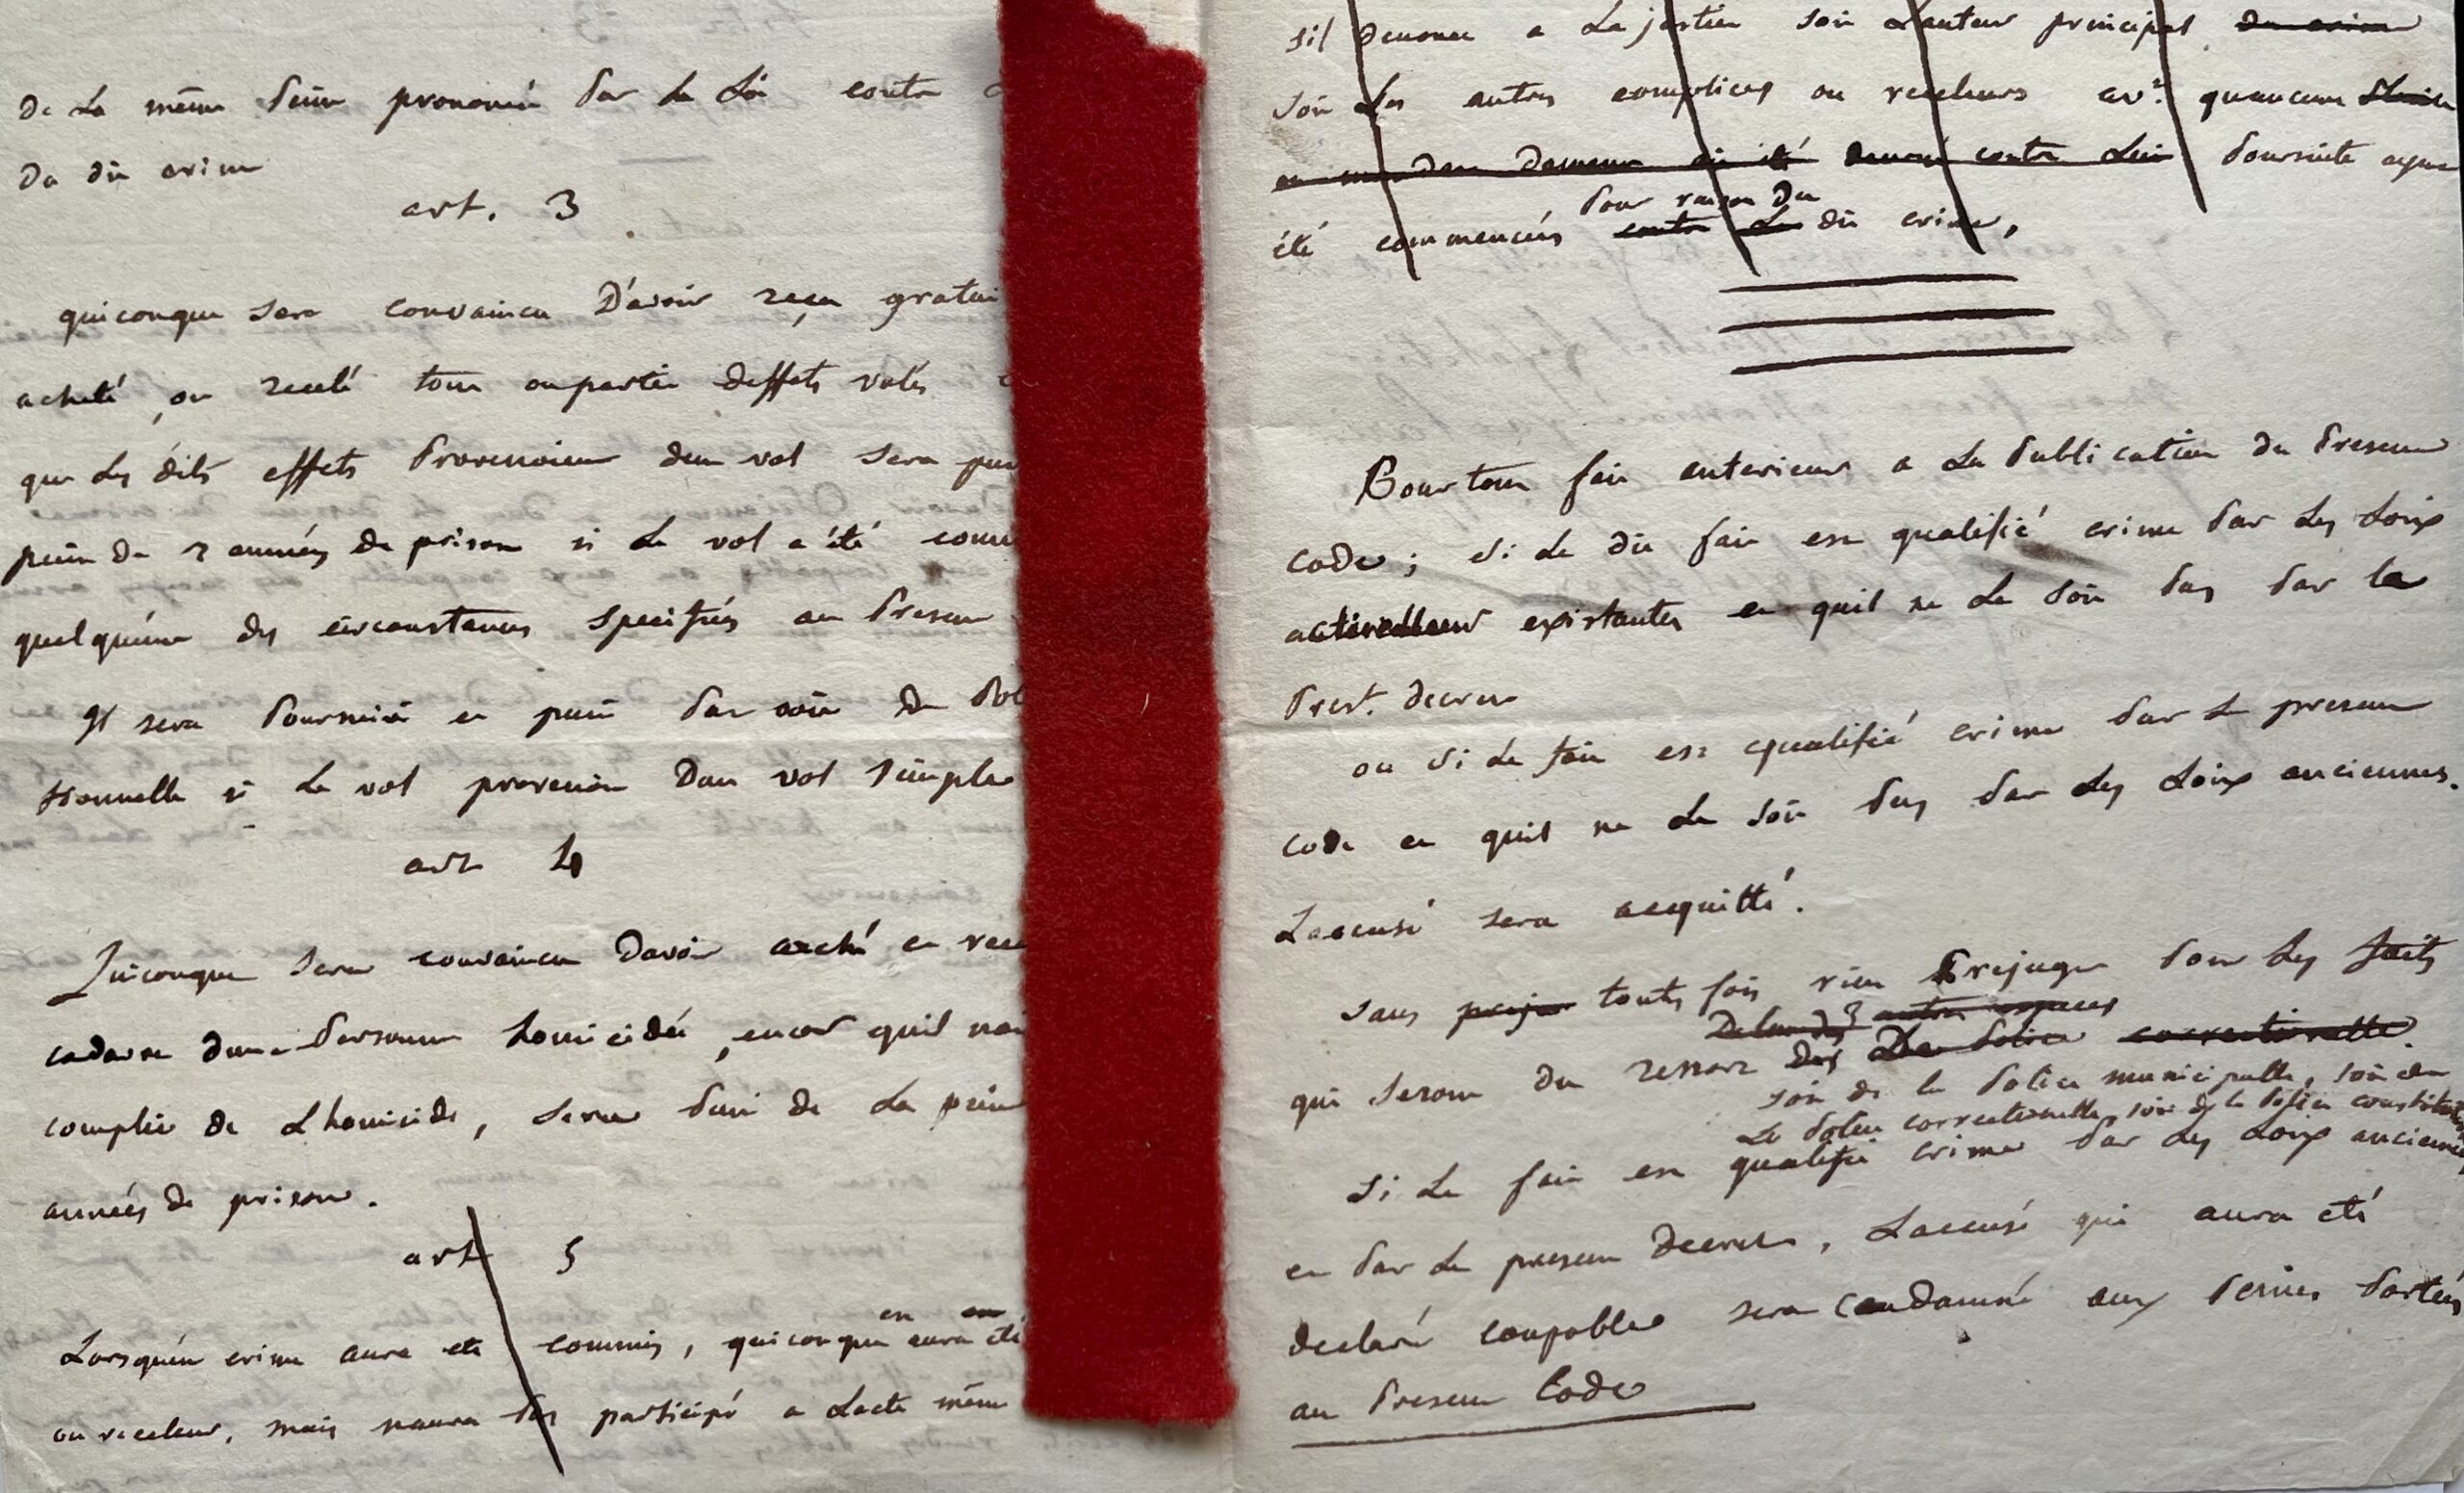 de la même peine prononcée par la loi contre
du dit crime
art. 3
quiconque sera convaincu D'avoir reçu gratui
acheté, ou recelé tout ou partie deffets volés
que les dits effets provenoient dun vol sera pun
peine de 2 années de prison si le vol a été com
quelqu'une des circonstances specifiées au present
Il sera poursuivi et puni par voie de pol
tionnelle si le vol provenoit dun vol simple
art 4
Quiconque sera convaincu davoir caché et rece
cadavre dune personne homicidée, encor quil nai
complice de Lhomicide, sera puni de la peine
années de prison.
art 5
en en
Lorsqu'un crime aura été commis, quiconque aura été
ou receleur, mais naura pas participé a Lacte même
sil denonce a La justice soit Lauteur principal du crime
soit Les autres complices ou receleurs avt. quaucune
été donné contre Lui poursuite ayent
pour raison du
été commencées contre Le dit crime,
Pour tout fait anterieur a La publication du present
code; si Le dit fait est qualifié crime par Les Loix
actuellement existantes et quil ne Le soit pas par le
prest. decret
ou si Le fait est qualifié crime par Le present
code et quil ne Le soit pas par Les Loix anciennes.
Laccusé sera acquitté.
sans prejug toutes fois rien prejuger pour Les faits
autres especes
qui seront du ressort des De Police correctionnelle.
soit de la Police municipalle, soit de
La Police correctionnelle, soit de la Police constitu
si Le fait est qualifié crime par Les Loix anciennes
et par Le present decret, Laccusé qui aura été
declaré coupable sera condamné aux peines portées
au present Code